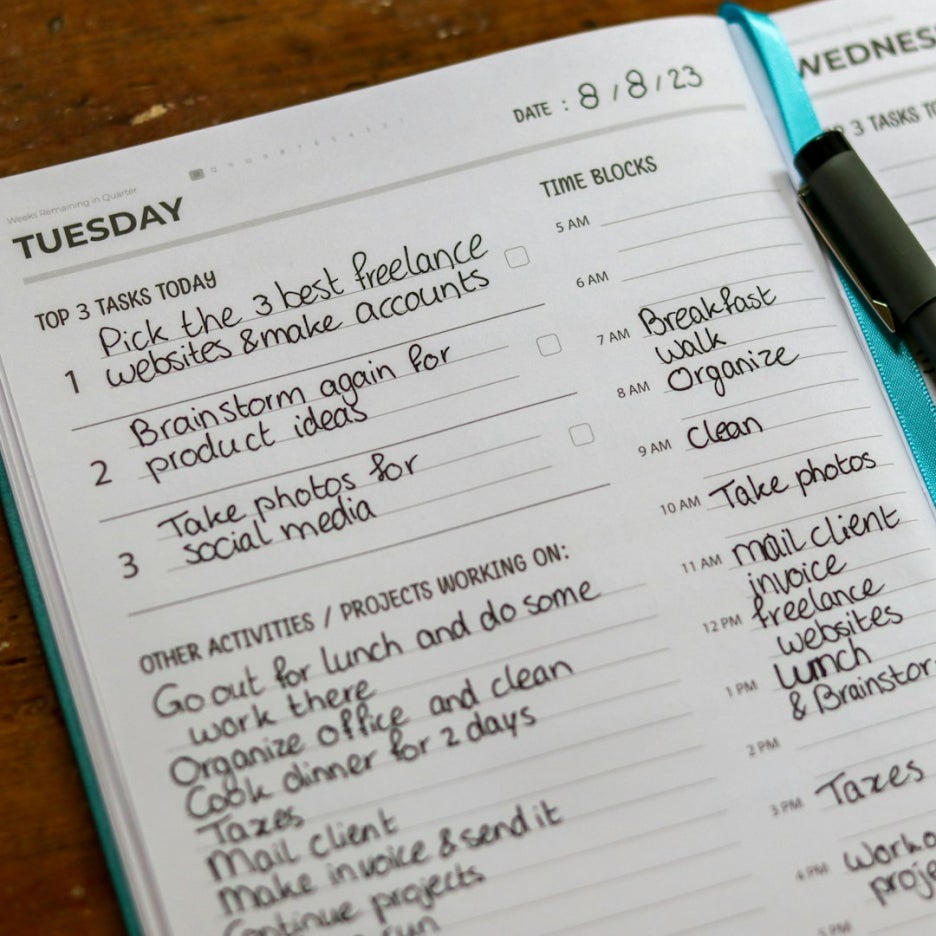 Weeks Remaining in Quarter
TUESDAY
DATE : 8 / 8 / 23
TOP 3 TASKS TODAY
1 Pick the 3 best freelance
websites & make accounts
2 Brainstorm again for
product ideas
3 Take photos for
social media
OTHER ACTIVITIES / PROJECTS WORKING ON:
Go out for lunch and do some
work there
Organize office and clean
Cook dinner for 2 days
Taxes
Mail client
Make invoice & send it
Continue projects
run
TIME BLOCKS
5 AM
6 AM
7 AM Breakfast
walk
8 AM Organize
9 AM Clean
10 AM Take photos
11 AM mail client
invoice
12 PM freelance
websites
1 PM Lunch
& Brainstor
2 PM
3 PM Taxes
4 PM
5 PM
WEDNES
3 TASKS TO